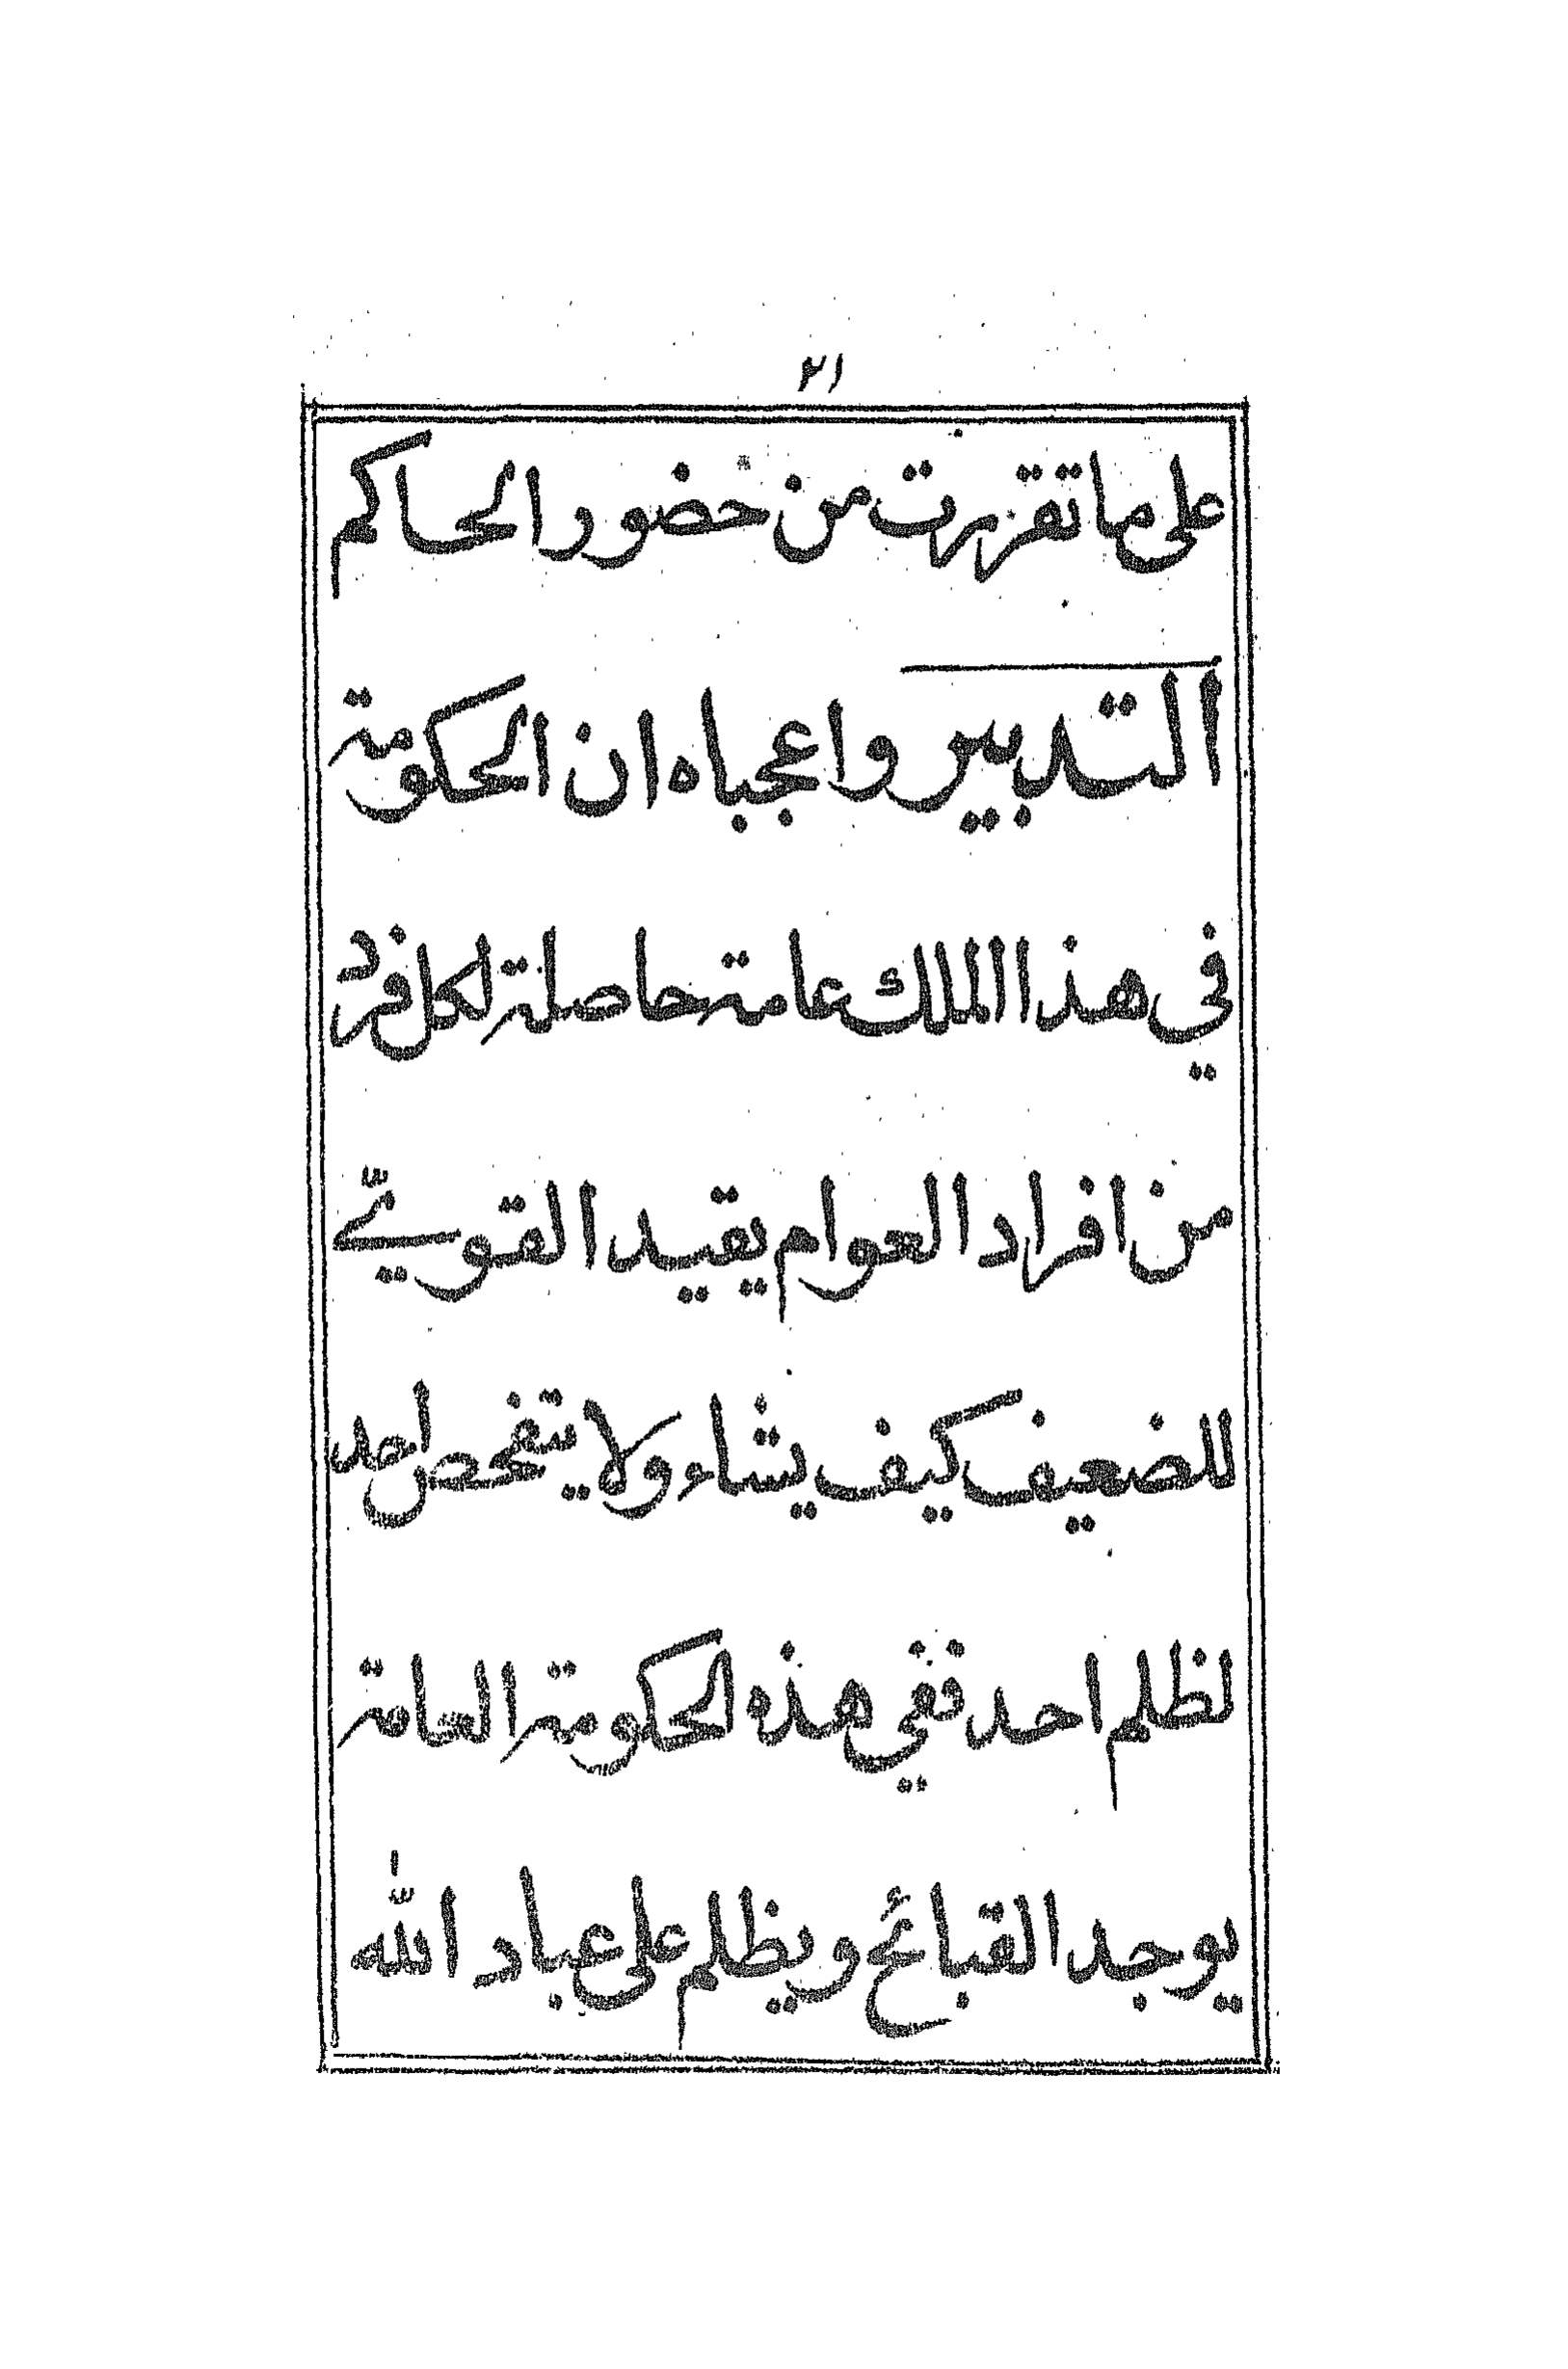 ٢١
على ما تقررت من حضور الحاكم
التدبير واعجباه ان الحكومة
في هذا الملك عامة حاصلة لكل فرد
من افراد العوام يقيد القويّ
للضعيف كيف يشاء ولا يتفحص احد
لظلم احد ففي هذه الحكومة العامة
يوجد القبائح ويظلم على عباد الله